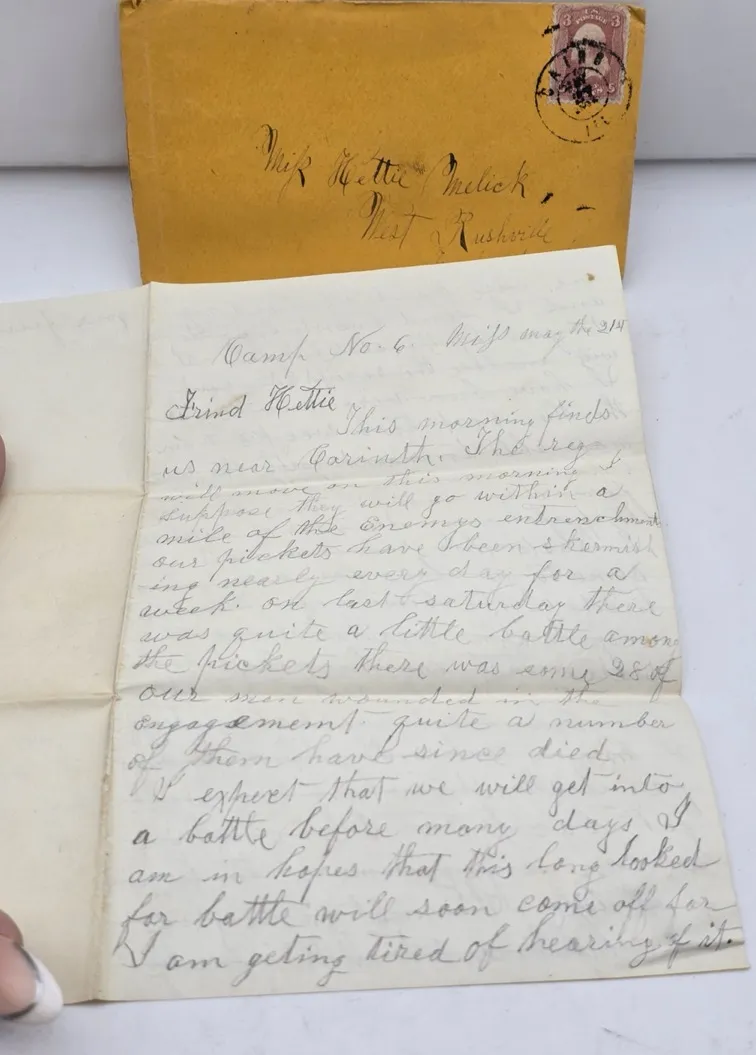 3 U.S. 3
POSTAGE
CAIRO
ILL
Miss Hettie Melick
West Rushville
Camp No. 6. Miss may the 21st
Frind Hettie
This morning finds
us near Corinth. The reg
will move on this morning I
suppose they will go within a
mile of the Enemys entrenchment
our pickets have been skermish
ing nearly every day for a
week. on last saturday there
was quite a little battle among
the pickets there was some 28 of
our men wounded in the
engagement. quite a number
of them have since died
I expect that we will get into
a battle before many days I
am in hopes that this long looked
for battle will soon come off for
I am geting tired of hearing of it.